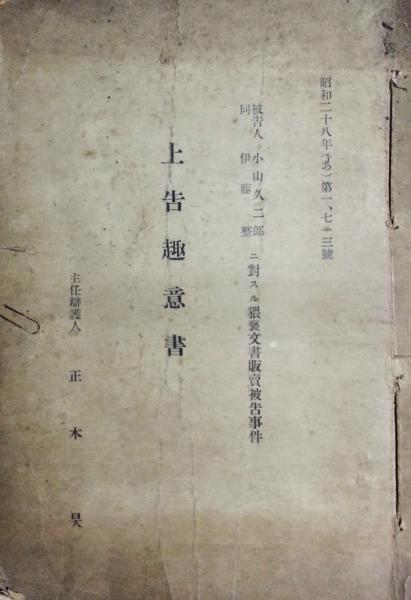 昭和二十八年(あ)第一、七一三號
被告人 小山久二郎
同 伊藤整
ニ對スル猥褻文書販賣被告事件
上告趣意書
主任辯護人 正木旲